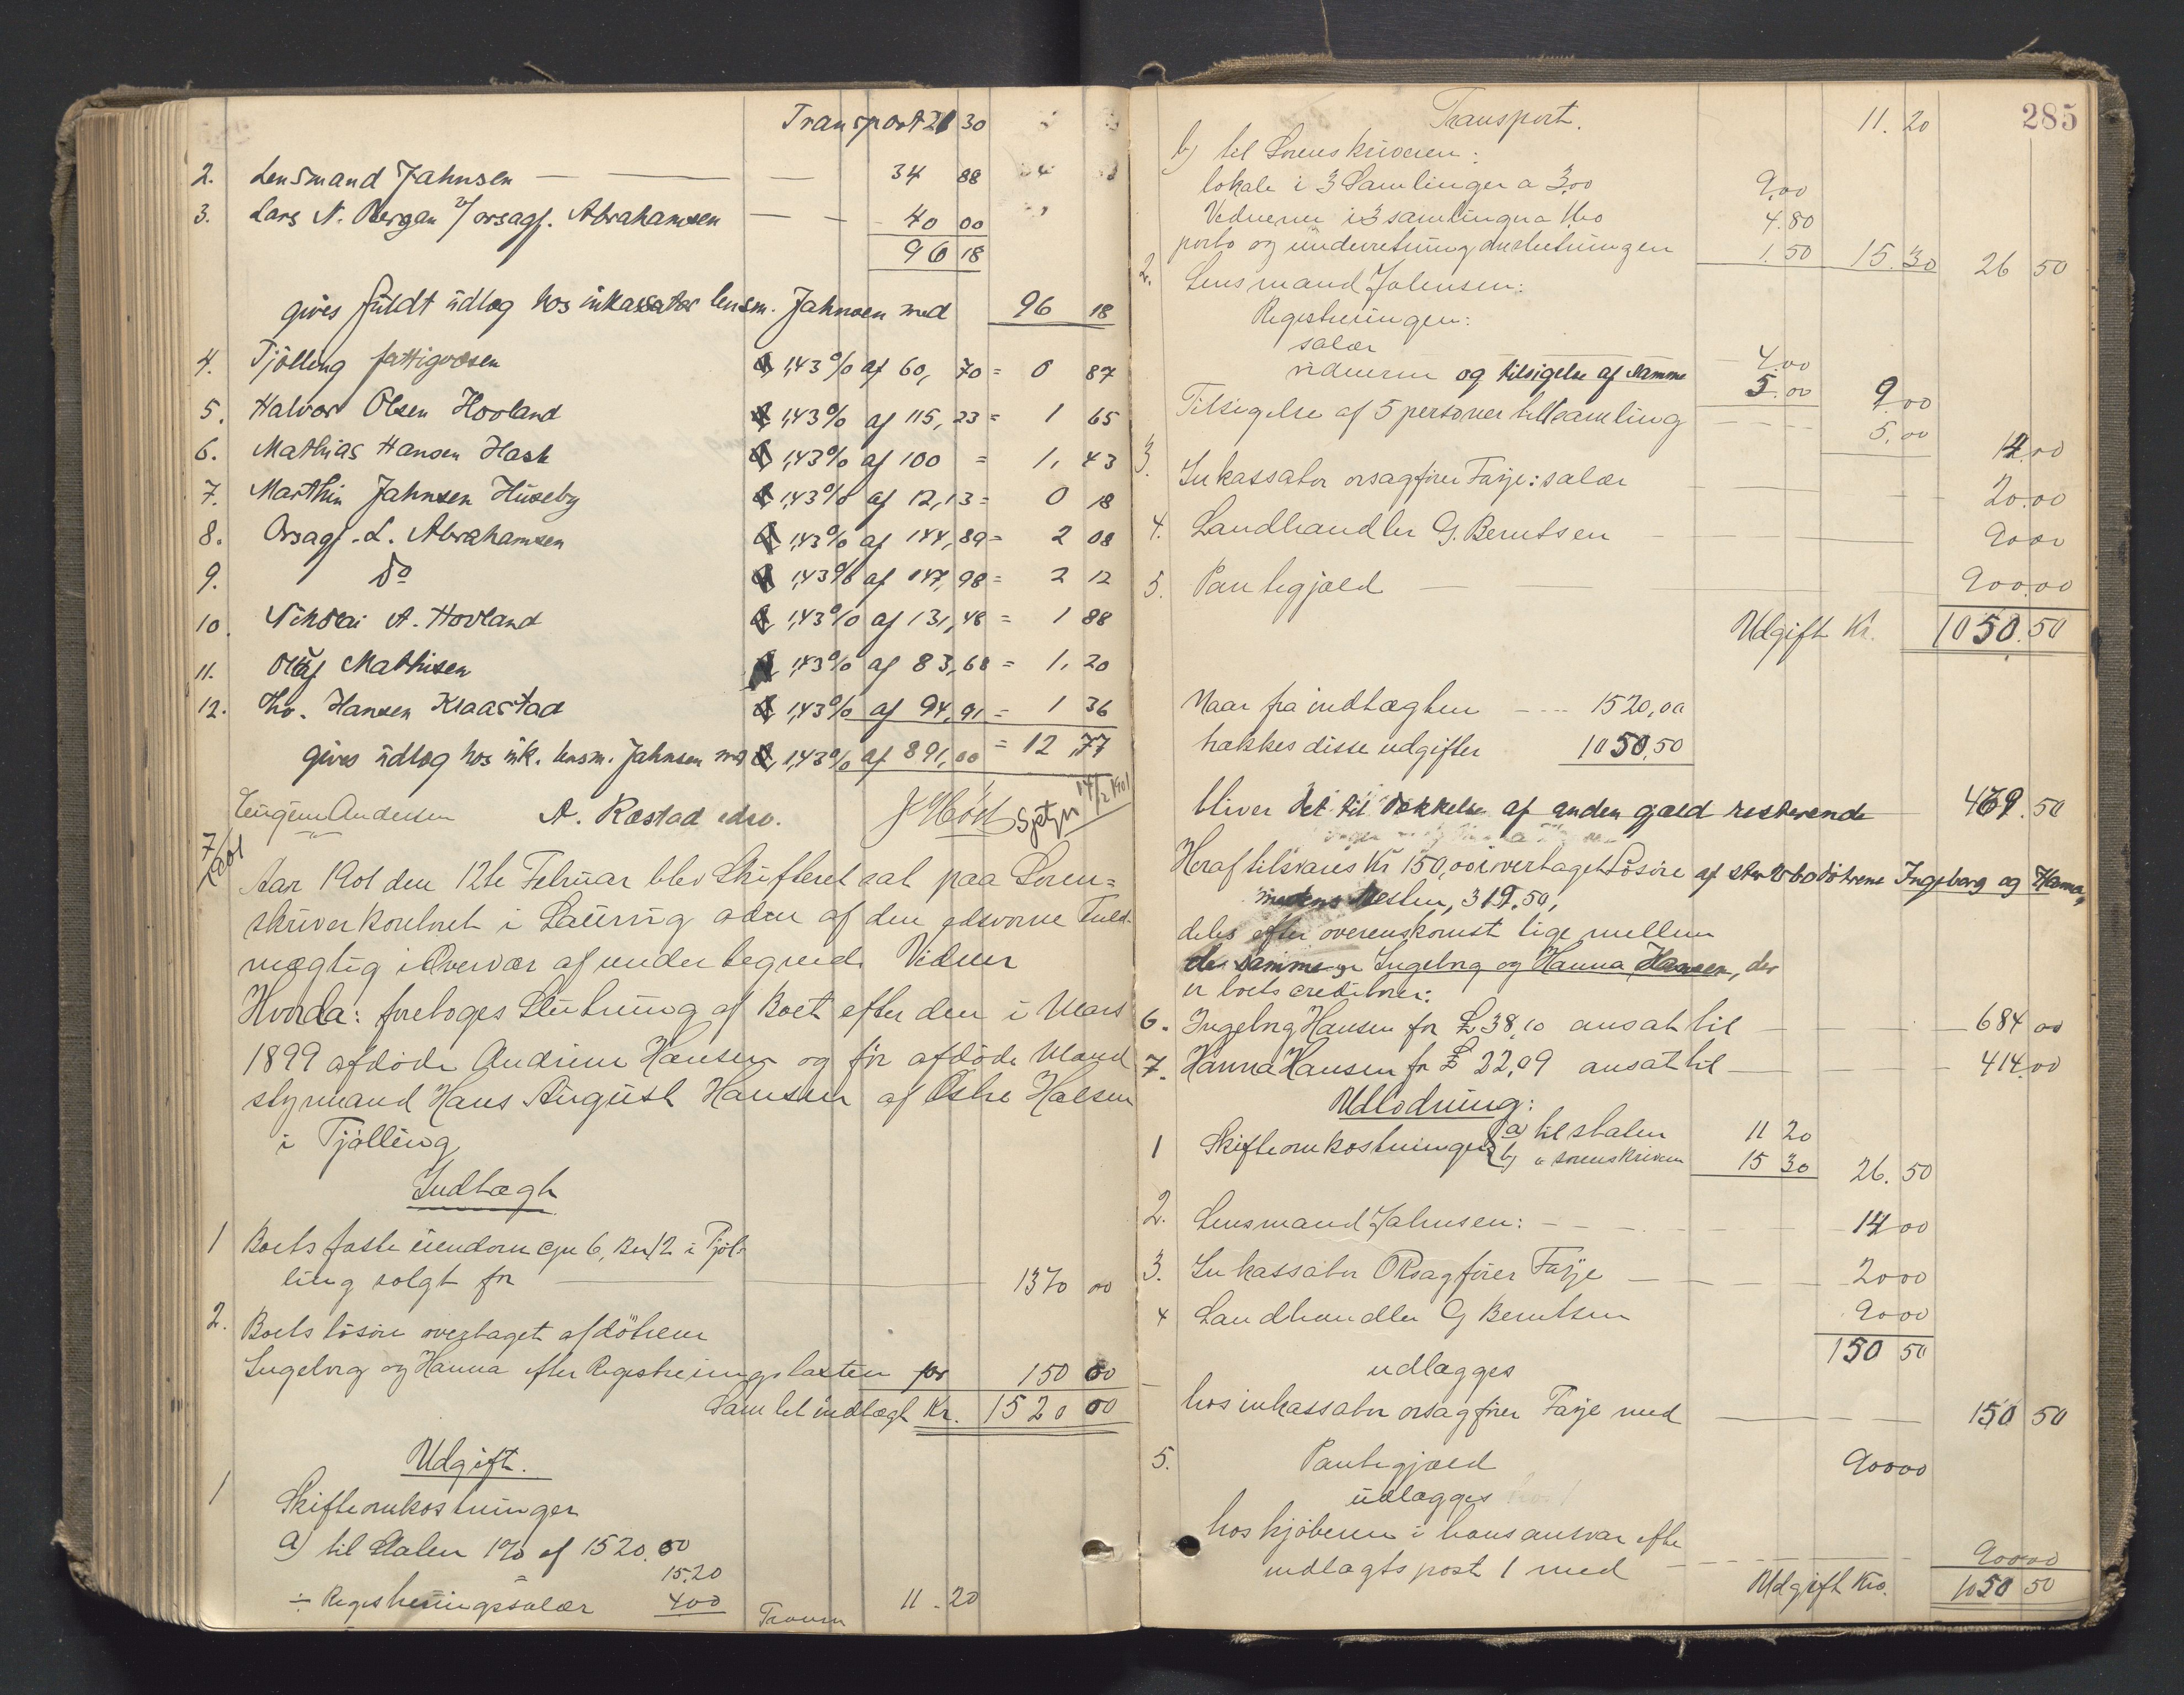 Transport 21 30
2. Lensmand Jahnsen — — — 34 88
3. Lars N. Bergan v/ orsagf. Abrahamsen — — 40 00
96 18
gives fuldt udlog hos inkassator lensm. Jahnsen med 96 18
4. Tjölling fattigvæsen 1,43% af 60,70 = 0 87
5. Halvor Olsen Hovland 1,43% af 115,23 = 1 65
6. Mathias Hansen Hask 1,43% af 100 = 1,43
7. Marthin Jahnsen Huseby 1,43% af 12,13 = 0 18
8. Orsagf. L. Abrahamsen 1,43% af 144,89 = 2 08
9. Do 1,43% af 147,98 = 2 12
10. Nikolai A. Hovland 1,43% af 131,48 = 1 88
11. Oluf Mathisen 1,43% af 83,68 = 1,20
12. Chr. Hansen Kraastad 1,43% af 94,91 = 1 36
gives udlog hos ink. lensm. Jahnsen med 1,43% af 891,00 = 12,77
Eugen Andersen A. Rostad edsv. J Höst 14/2 1901
7/ 1901
Aar 1901 den 12te Februar blev Skifteret sat paa Soren=
skriverkontoret i Laurvig af den edsvorne Fuld
mægtig i Overvær af undertegnede Vidner
Hvorda: foretoges Slutning af Boet efter den i Mars
1899 afdöde Andrine Hansen og för afdöde Mand
styrmand Hans August Hansen af Östre Halsen
i Tjölling
Indtægt
1 Boets faste eiendom gn 6, Bn 12 i Tjöl-
ling solgt for — 1370 00
2. Boets lösöre overtaget af dötrene
Ingeborg og Hanna efter Registreringstaxten for 150 00
Samlet indtægt Kr. 1520 00
Udgift.
1 Skifteomkostninger
a) til Staten 1% af 1520.00
15.20
÷ Registreringssalær 4.00 11.20
Transp
285
Transport. 11.20
b) til Sorenskriveren:
lokale i 3 Samlinger a 3,00 9,00
Vidnerne i 3 samlinger a 1.60 4.80
porto og underretning om slutningen 1.50 15.30 26 50
2. Lensmand Jahnsen:
Registreringen:
salær 4.00
vidnerne og tilsigelse af samme 5.00 9.00
Tilsigelse af 5 personer til 1 samling - - - 5,00 14.00
3. Inkassator orsagförer Farje: salær — — 20.00
4. Landhandler G. Berntsen — — — 90 00
5. Pantegjæld — — 900.00
Udgift Kr. 1050.50
Naar fra indtægten - - - 1520,00
trækkes disse udgifter 1050,50
bliver det til dækkelse af anden gæld resterende 469.50
Heraf tilsvares Kr 150,00 i overtaget Lösöre af stervbodötrene Ingeborg og Hanna,
medens Resten, 319.50,
deles efter overenskomst lige mellem
de samme Ingeborg og Hanna Hansen, der
er boets creditorer:
6. Ingeborg Hansen for £ 38,10 ansat til — — — 684 00
7. Hanna Hansen for £ 22,09 ansat til — — — 414.00
Udlodning:
1 Skifteomkostninger a) til staten 11 20
b) " sorenskriveren 15 30 26.50
2. Lensmand Jahnsen: - - - 14 00
3. Inkassator ORsagförer Farje — — — 20 00
4 Landhandler G Berntsen 90 00
150 50
udlægges
hos inkassator orsagförer Farje med — — — 150 50
5. Pantegjæld 900 00
udlægges
hos kjöberen i hans ansvar efter
indtægts post 1 med - - - 900.00
Udgift Kro. 1050 50